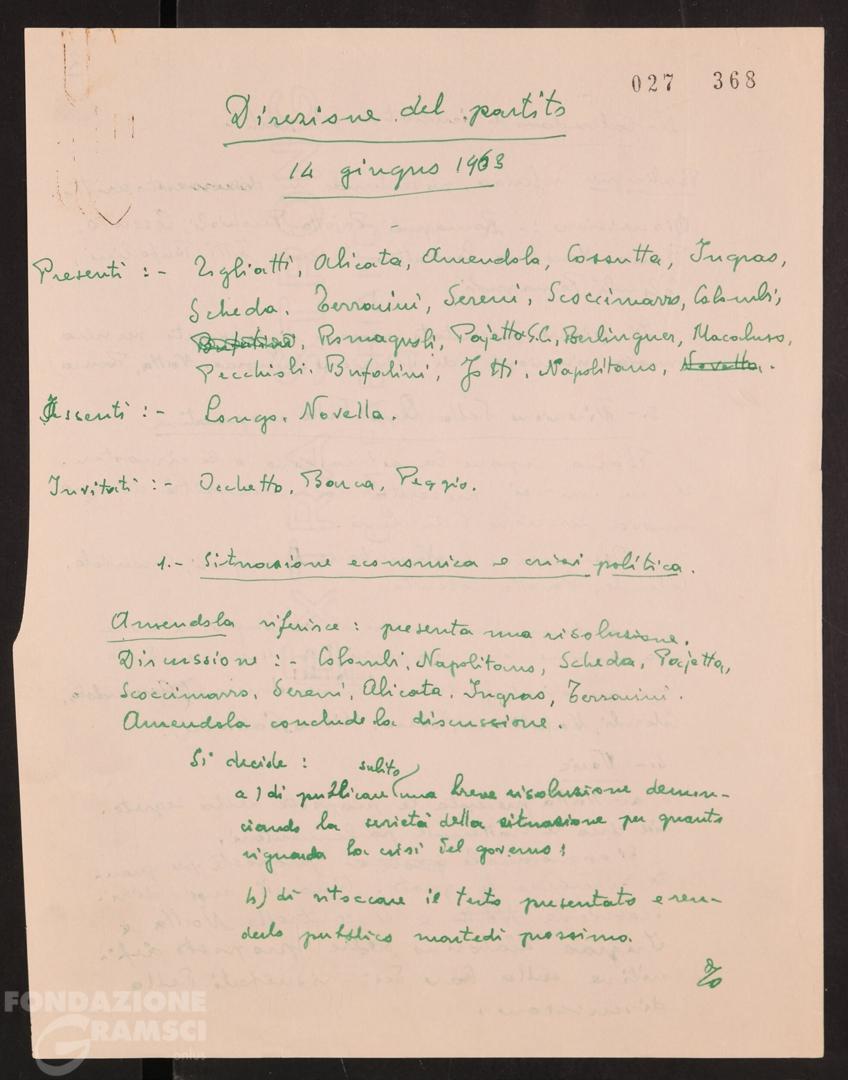 027 368
Direzione del partito
14 giugno 1963
Presenti :- Togliatti, Alicata, Amendola, Cossutta, Ingrao,
Scheda, Terracini, Sereni, Scoccimarro, Colombi,
Bufalini, Romagnoli, Pajetta G.C., Berlinguer, Macaluso,
Pecchioli, Bufalini, Jotti, Napolitano, Novella.
Assenti :- Longo, Novella.
Invitati :- Occhetto, Barca, Peggio.
1.- Situazione economica e crisi politica.
Amendola riferisce : presenta una risoluzione.
Discussione :- Colombi, Napolitano, Scheda, Pajetta,
Scoccimarro, Sereni, Alicata, Ingrao, Terracini.
Amendola conclude la discussione.
Si decide :
a) di pubblicare subito una breve risoluzione denun-
ciando la serietà della situazione per quanto
riguarda la crisi del governo;
b) di ritoccare il testo presentato e ren-
derlo pubblico martedì prossimo.
FONDAZIONE
GRAMSCI
onlus